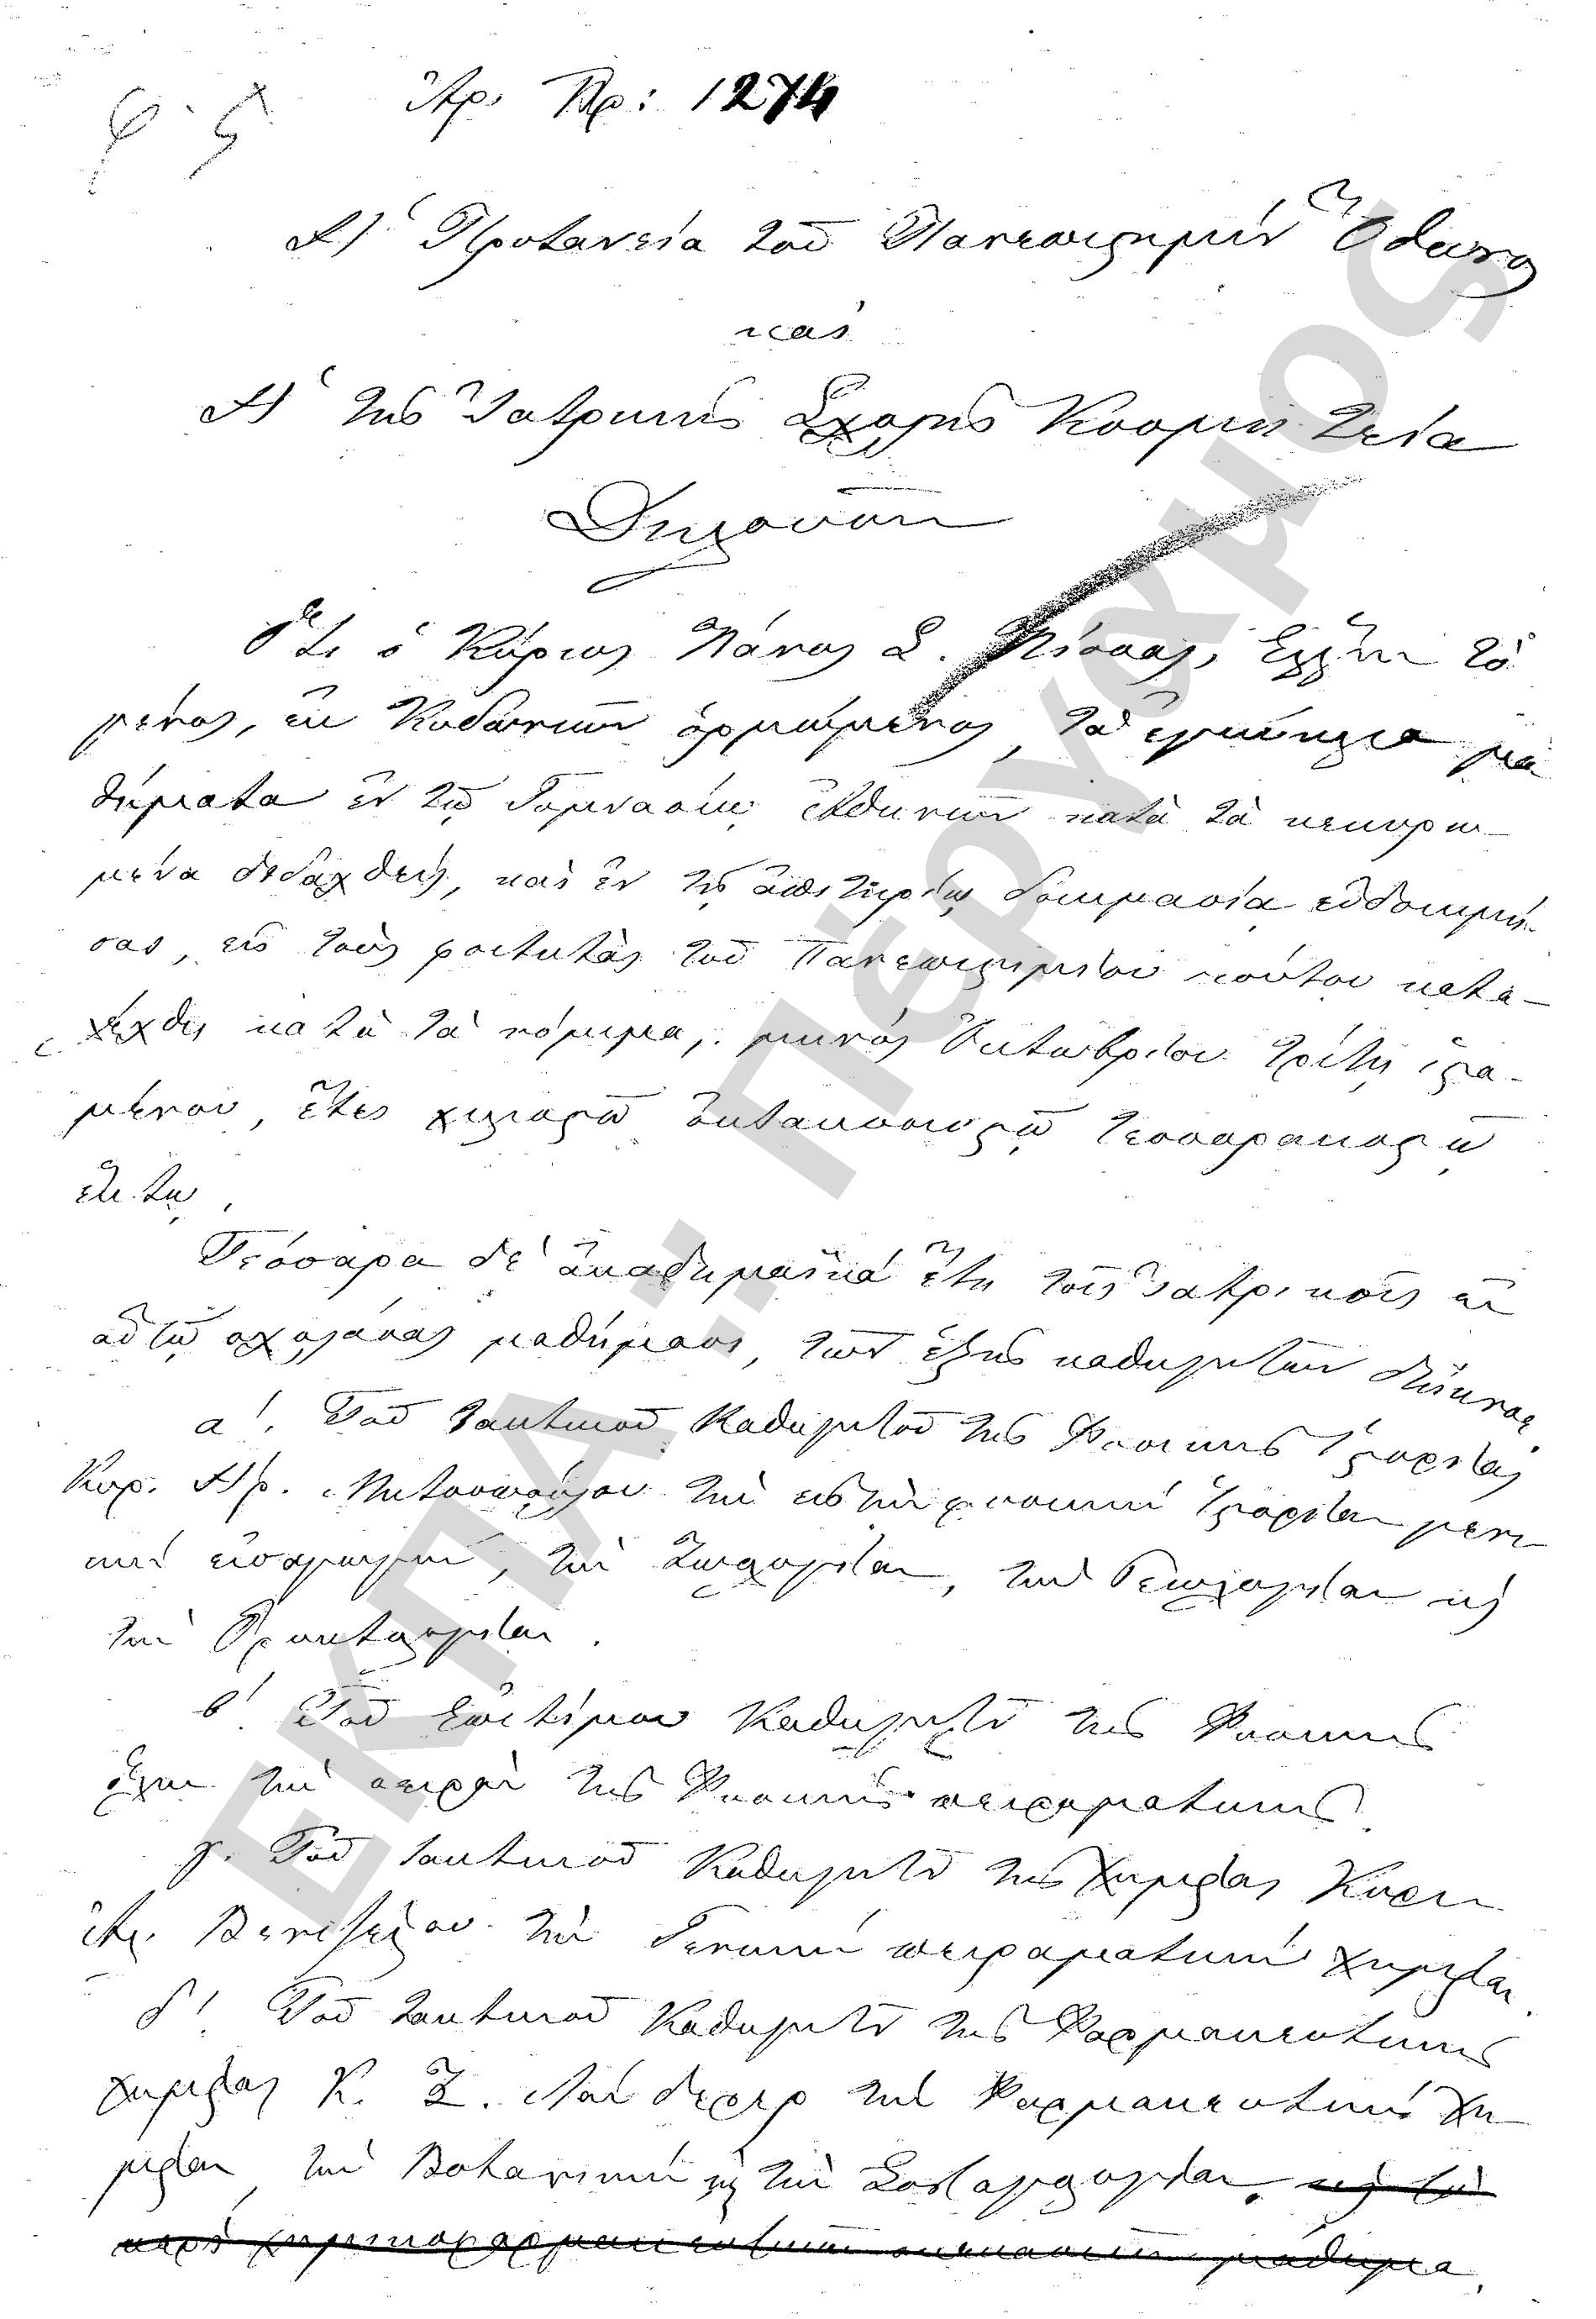 φ. 5
Ἀρ. Πρ: 1274
Ἡ Πρυτανεία τοῦ Πανεπιστημίου Ὄθωνος
καὶ
Ἡ τῆς Ἰατρικῆς Σχολῆς Κοσμητεία
Δηλοῦσι
Ὅτι ὁ Κύριος Πάνος Σ. Ἕλλην τὸ
γένος, ἐκ Κυδωνιῶν ὁρμώμενος, τὰ ἐγκύκλια μα
θήματα ἐν τῷ Γυμνασίῳ Ἀθηνῶν κατὰ τὰ κεκυρω-
μένα διδαχθείς, καὶ ἐν τῇ ἀπολυτηρίῳ δοκιμασίᾳ εὐδοκιμή-
σας, εἰς τοὺς φοιτητὰς τοῦ Πανεπιστημίου τούτου κατε-
λέχθη κατὰ τὰ νόμιμα, μηνὸς Ὀκτωβρίου τρίτῃ ἱστα-
μένου, ἔτει χιλιοστῷ ὀκτακοσιοστῷ τεσσαρακοστῷ
ἕκτῳ.
Τέσσαρα δὲ ἀκαδημαϊκὰ ἔτη τοῖς ἰατρικοῖς ἐν
αὐτῷ σχολάσας μαθήμασι, τῶν ἑξῆς καθηγητῶν διήκουσε
α΄. Τοῦ τακτικοῦ Καθηγητοῦ τῆς Φυσικῆς Ἱστορίας
Κυρ. Ἡρ. Μητσοπούλου τὴν εἰς τὴν φυσικὴν Ἱστορίαν γενι
κὴν εἰσαγωγήν, τὴν Ζωολογίαν, τὴν Γεωλογίαν καὶ
τὴν Ὀρυκτολογίαν.
β΄. Τοῦ Ἐπιτίμου Καθηγητοῦ τῆς Φυσικῆς
ὅλην τὴν σειρὰν τῆς Φυσικῆς πειραματικῆς.
γ. Τοῦ τακτικοῦ Καθηγητοῦ τῆς Χημείας Κυρίου
Ἀ. Βενιζέλου τὴν Γενικὴν πειραματικὴν χημείαν.
δ΄. Τοῦ τακτικοῦ Καθηγητοῦ τῆς Φαρμακευτικῆς
χημείας Κ. Ξ. Λάνδερερ τὴν Φαρμακευτικὴν χη
μείαν, τὴν Βοτανικὴν καὶ τὴν Συνταγολογίαν. καὶ τὸ
περὶ χημικοφαρμακευτικῶν σκευασιῶν μάθημα.
ΕΚΠΑ:: Πέργαμος